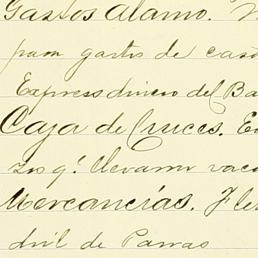 Gastos Alamo.
para gastos de casa
Express dinero del Ba
Caja de Cruces. En
zos q! llevaron vaca
Mercancías. Fle
dril de Parras